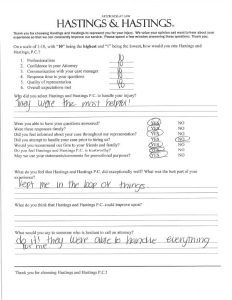 HASTINGS & HASTINGS.
Thank you for choosing Hastings and Hastings to represent you for your injury. We value your opinion and want to hear about your
experience so that we can constantly improve our service. Please spend a few minutes answering these questions. Thank you.
On a scale of 1-10, with "10" being the highest and "1" being the lowest, how would you rate Hastings and
Hastings, P.C.?
1. Professionalism 10
2. Confidence in your Attorney 10
3. Communication with your case manager 10
4. Response time to questions 10
5. Quality of representation 10
6. Overall expectations met 10
Why did you select Hastings and Hastings P.C. to handle your injury?
They were the most helpful!
Were you able to have your questions answered? YES NO
Were these responses timely? YES NO
Did you feel informed about your case throughout our representation? YES NO
Did you attempt to handle your case prior to hiring us? YES NO
Would you recommend our firm to your friends and family? YES NO
Do you feel Hastings and Hastings P.C. is trustworthy? YES NO
May we use your statements/comments for promotional purposes? YES NO
What do you feel that Hastings and Hastings P.C. did exceptionally well? What was the best part of your
experience?
Kept me in the loop or things
What do you think that Hastings and Hastings P.C. could improve upon?
What would you say to someone who is hesitant to call an attorney?
do it! they were able to handle everything
for me
Thank you for choosing Hastings and Hastings P.C.!